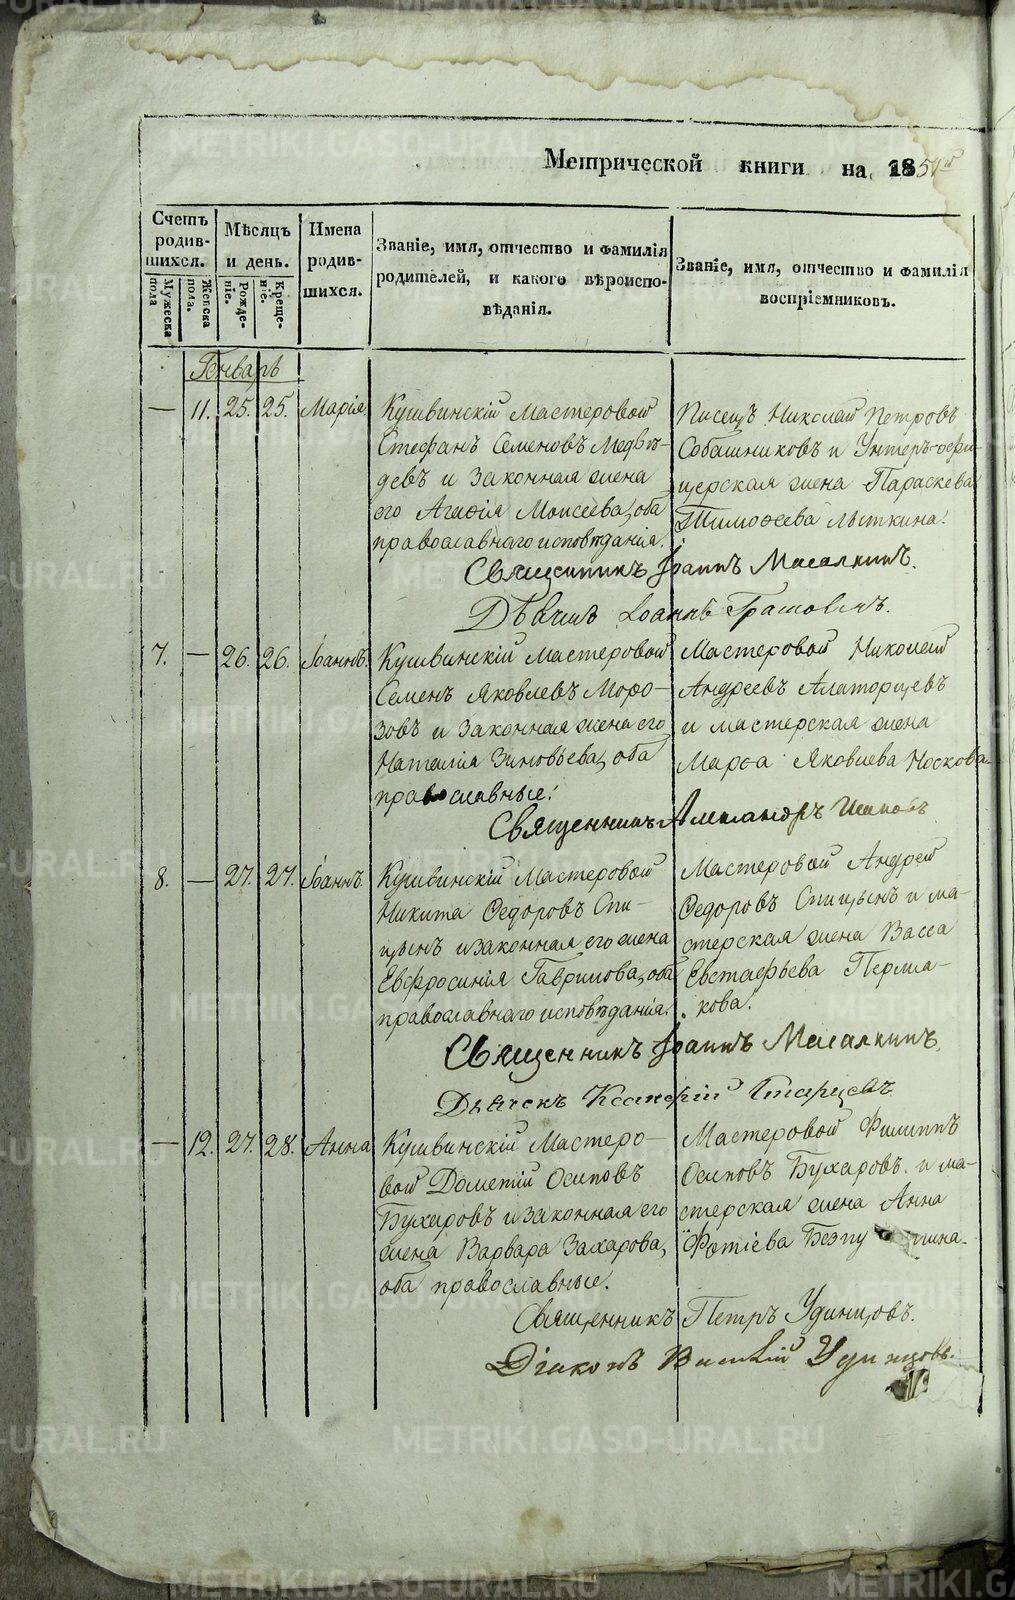 METRIKI.GASO-URAL.RU
Метрической книги на 185
Счетъ родив-шихся.
Мужеска пола
Женска пола.
Мѣсяцъ и день.
Рожде-ніе.
Креще-ніе.
Имена родив-шихся.
Званіе, имя, отчество и фамилія
родителей, и какого вѣроиспо-
вѣданія.
Званіе, имя, отчество и фамилія
воспріемниковъ.
Генварь
— 11. 25. 25. Марія.
Кушвинскій Мастеровой
Стефанъ Семеновъ Медвѣ-
девъ и законная жена
его Агафія Моисеева, оба
православнаго исповѣданія.
Писецъ Николай Петровъ
Собашниковъ и Унтеръ-офи-
церская жена Параскева
Тимофеева Лыткина.
Священникъ Іоаннъ Масалкинъ.
Іоаннъ
7. — 26. 26. Іоаннъ.
Кушвинскій Мастеровой
Семенъ Яковлевъ Моро-
зовъ и законная жена его
Наталія Зиновьева, оба
православные.
Мастеровой Николай
Андреевъ Алаторцевъ
и мастерская жена
Марѳа Яковлева Носкова.
Священникъ Александръ
8. — 27. 27. Іоаннъ.
Кушвинскій Мастеровой
Никита Ѳедоровъ Спи-
цынъ и законная его жена
Евфросинія Гаврилова, оба
православнаго исповѣданія.
Мастеровой Андрей
Ѳедоровъ Спицынъ и ма-
стерская жена Васса
Евстафьева Перма-
кова.
Священникъ Іоаннъ Масалкинъ.
Дьячекъ Старцевъ
— 12. 27. 28. Анна
Кушвинскій Мастеро-
вой Дометій Осиповъ
Бухаровъ и законная его
жена Варвара Захарова,
оба православные.
Мастеровой Филиппъ
Осиповъ Бухаровъ и ма-
стерская жена Анна
Фотіева
Священникъ Петръ Удинцовъ.
Діаконъ Василій Удинцовъ.